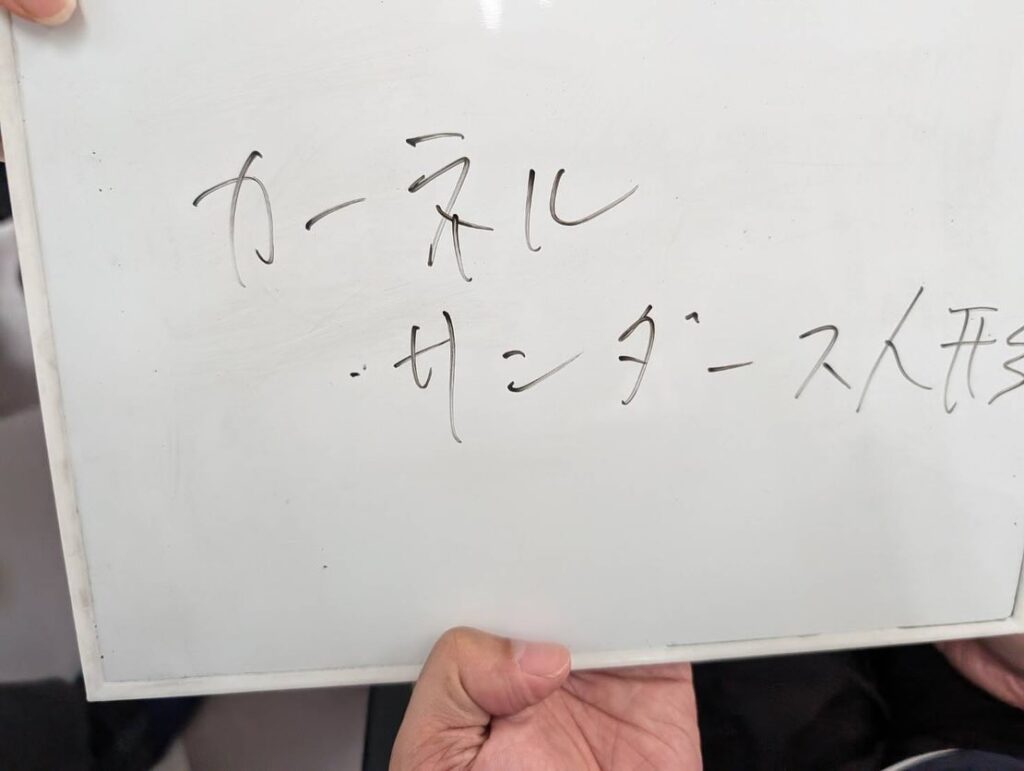 カーネル
・サンダース人形